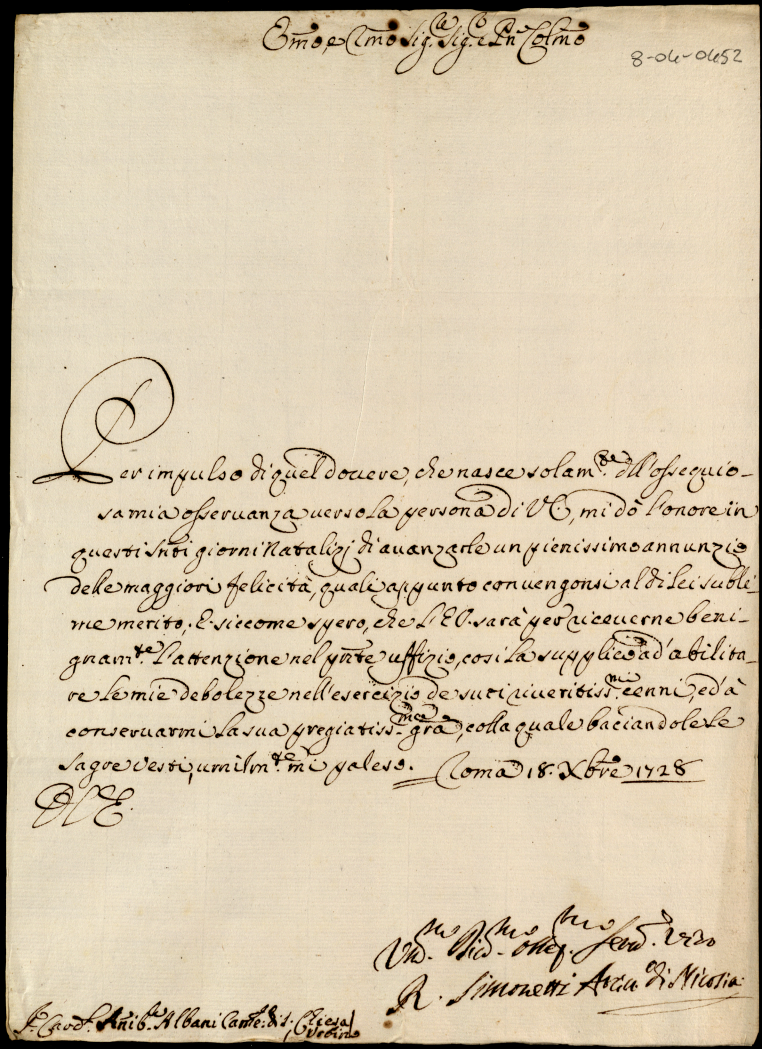 Emo, e Rmo Sig.re Sig.r e Pñ Colmo
8-04-0452
Per impulso di quel dovere, che nasce solam.te dall'ossequio-
sa mia osservanza verso la persona di V.E., mi dò l'onore in
questi Snti giorni Natalizj di avanzarle un pienissimo annunzio
delle maggiori felicità, quali appunto convengonsi al di Lei subli-
me merito; E siccome spero, che l'E.V. sarà per riceverne beni-
gnam.te l'attenzione nel pñte uffizio, così la supplico ad' abilita-
re le mie debolezze nell'esercizio de suoi riveritiss.mi cenni, ed' à
conservarmi la sua pregiatiss.ma grã, colla quale baciandole le
sagre Vesti, umilm.te mi paleso. Roma 18. Xbre 1728
D V E.
Um.mo Div.mo Oss.mo Serv.re Vero
R. Simonetti Arciv.o di Nicosia
S.r Card.l Anib.le Albani Cam.e di S. Chiesa
Urbino